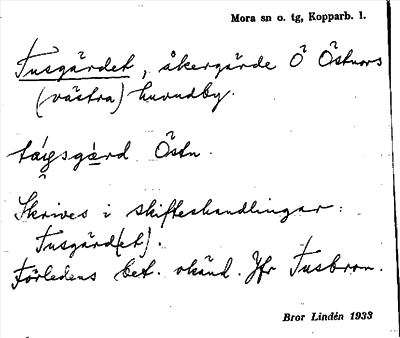 Mora sn o. tg, Kopparb. l.
Tusgärdet, åkergärde Ö Östnors
(västra) huvudby.
Östn.
Skrives i skifteshandlingar:
Tusgärd(et).
Förledens bet. okänd. Jfr Tusbron.
Bror Lindén 1933